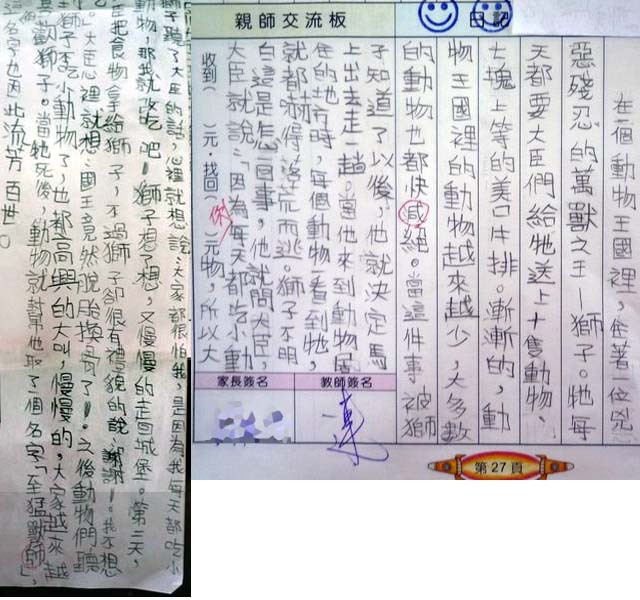 親師交流板
日記
在一個動物王國裡,住著一位兇
惡殘忍的萬獸之王—獅子。牠每
天都要大臣們給牠送上十隻動物、
七塊上等的美口牛排。漸漸的,動
物王國裡的動物越來越少,大多數
的動物也都快減絕。當這件事被獅
子知道了以後,他就決定馬
上出去走一趟。當他來到動物居
住的地方時,每個動物一看到牠,
就都嚇得落荒而逃。獅子不明
白這是怎回事,他就問大臣,
大臣就說:「因為每天都吃小動
物,所以大
收到( )元.找回( )元
你
家長簽名
教師簽名
第27頁
獅子聽了大臣的話,心裡就想說:大家都很怕我,是因為我每天都吃小
動物,那我就改吃吧!獅子想了想,又慢慢的走回城堡。第三天,
臣把食物拿給獅子,不過獅子卻很有禮貌的說:謝謝!我不想
。大臣心裡就想:國王竟然脫胎換骨了!。之後動物們聽
獅子不吃小動物了,也都高興的大叫,慢慢的,大家越來越
喜歡獅子。當牠死後,動物就幫他取了個名字「至猛獸師」,
這個名字也因此流芳百世。